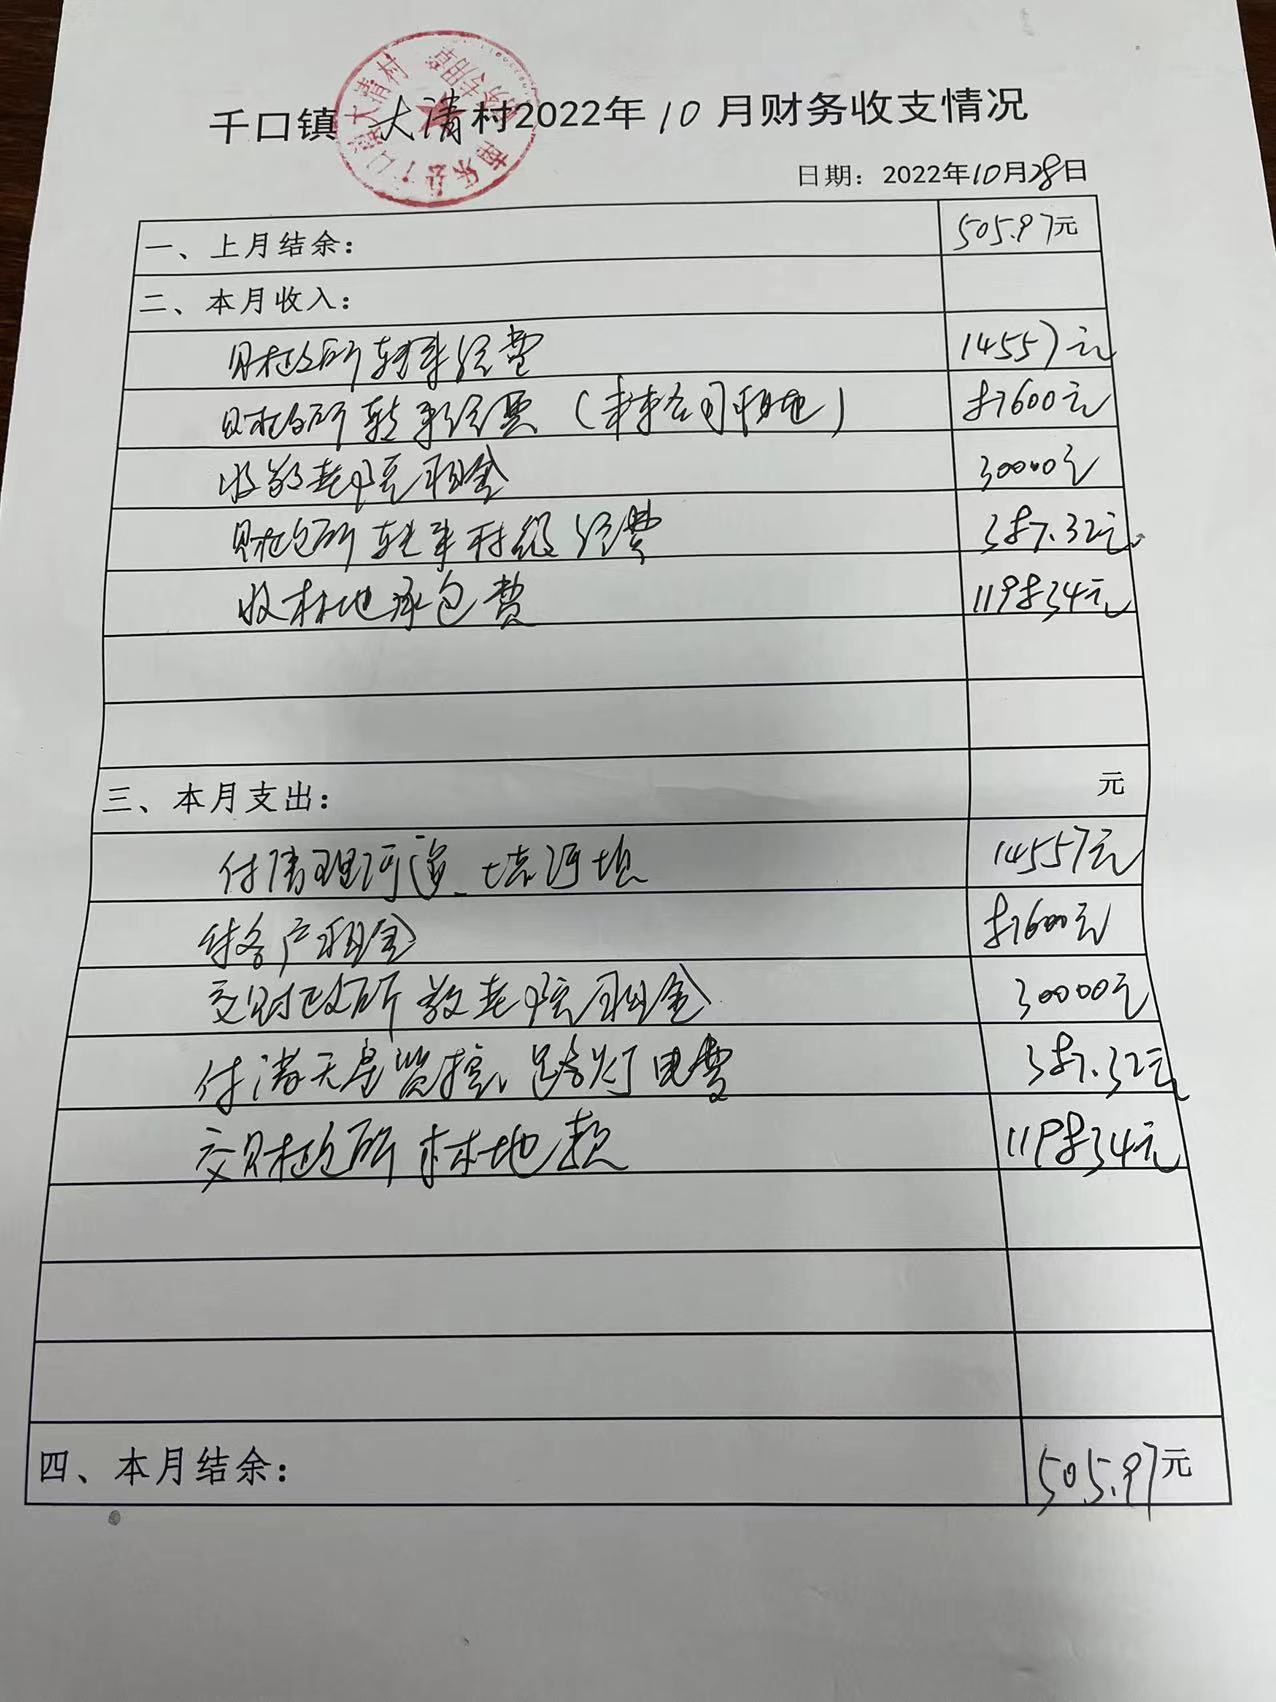 千口镇 大清村2022年10月财务收支情况
日期：2022年10月28日
一、上月结余： 505.97元
二、本月收入：
财政所转来经费 14557元
财政所转来经费（林公司租地） 87600元
收敬老院租金 30000元
财政所转来村级经费 387.32元
收林地承包费 119834元
三、本月支出： 元
付清理河道、 14557元
付各户租金 87600元
交财政所敬老院租金 30000元
付满天星监控、路灯电费 387.32元
交财政所林地款 119834元
四、本月结余： 505.97元